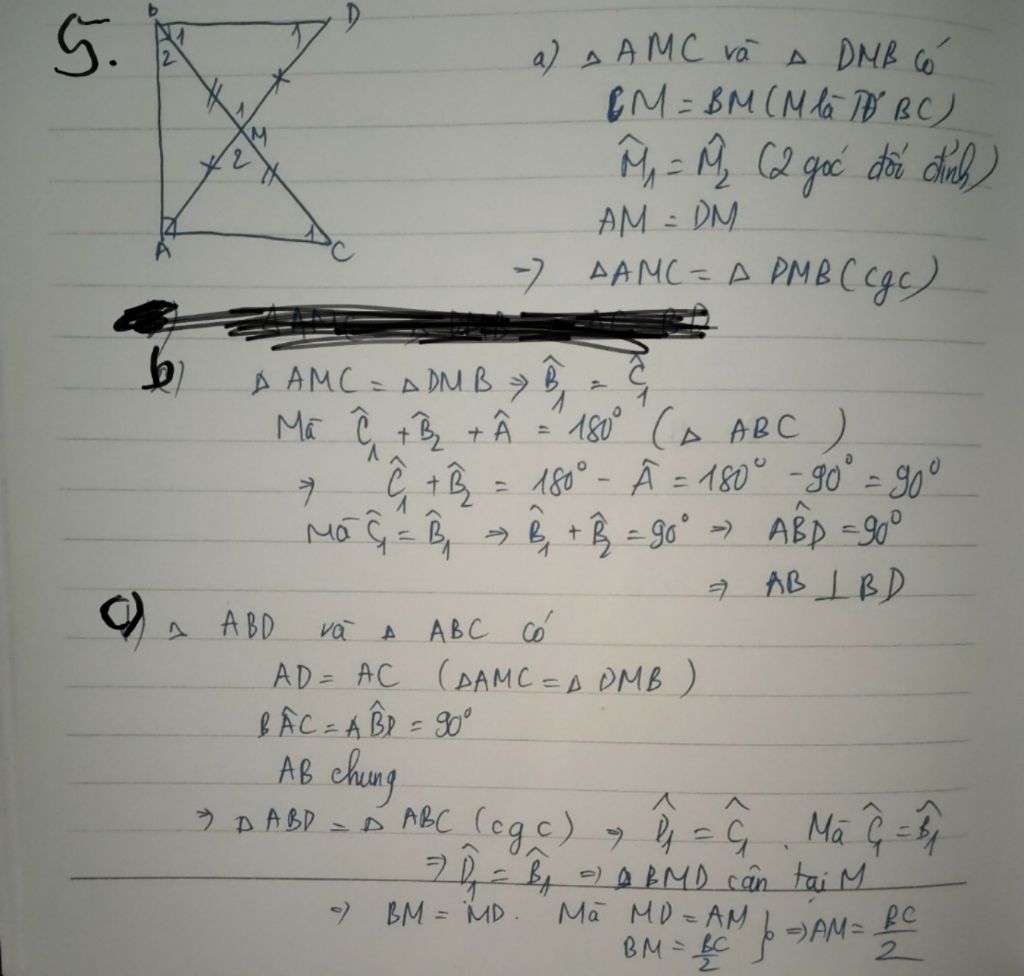 5.
B
D
1
2
1
1
M
2
A
1
C
a) △ AMC và △ DMB có
CM = BM (M là TĐ BC)
M̂₁ = M̂₂ (2 góc đối đỉnh)
AM = DM
=> △AMC = △ DMB (cgc)
b) △ AMC = △DMB => B̂₁ = Ĉ₁
Mà Ĉ₁ + B̂₂ + Â = 180° (△ ABC)
=> Ĉ₁ + B̂₂ = 180° - Â = 180° - 90° = 90°
Mà Ĉ₁ = B̂₁ => B̂₁ + B̂₂ = 90° => AB̂D = 90°
=> AB ⊥ BD
c) △ ABD và △ ABC có
AD = AC (△AMC = △ DMB)
BÂC = AB̂D = 90°
AB chung
=> △ ABD = △ ABC (cgc) => D̂₁ = Ĉ₁. Mà Ĉ₁ = B̂₁
=> D̂₁ = B̂₁ => △ BMD cân tại M
=> BM = MD. Mà MD = AM } => AM = BC/2
BM = BC/2